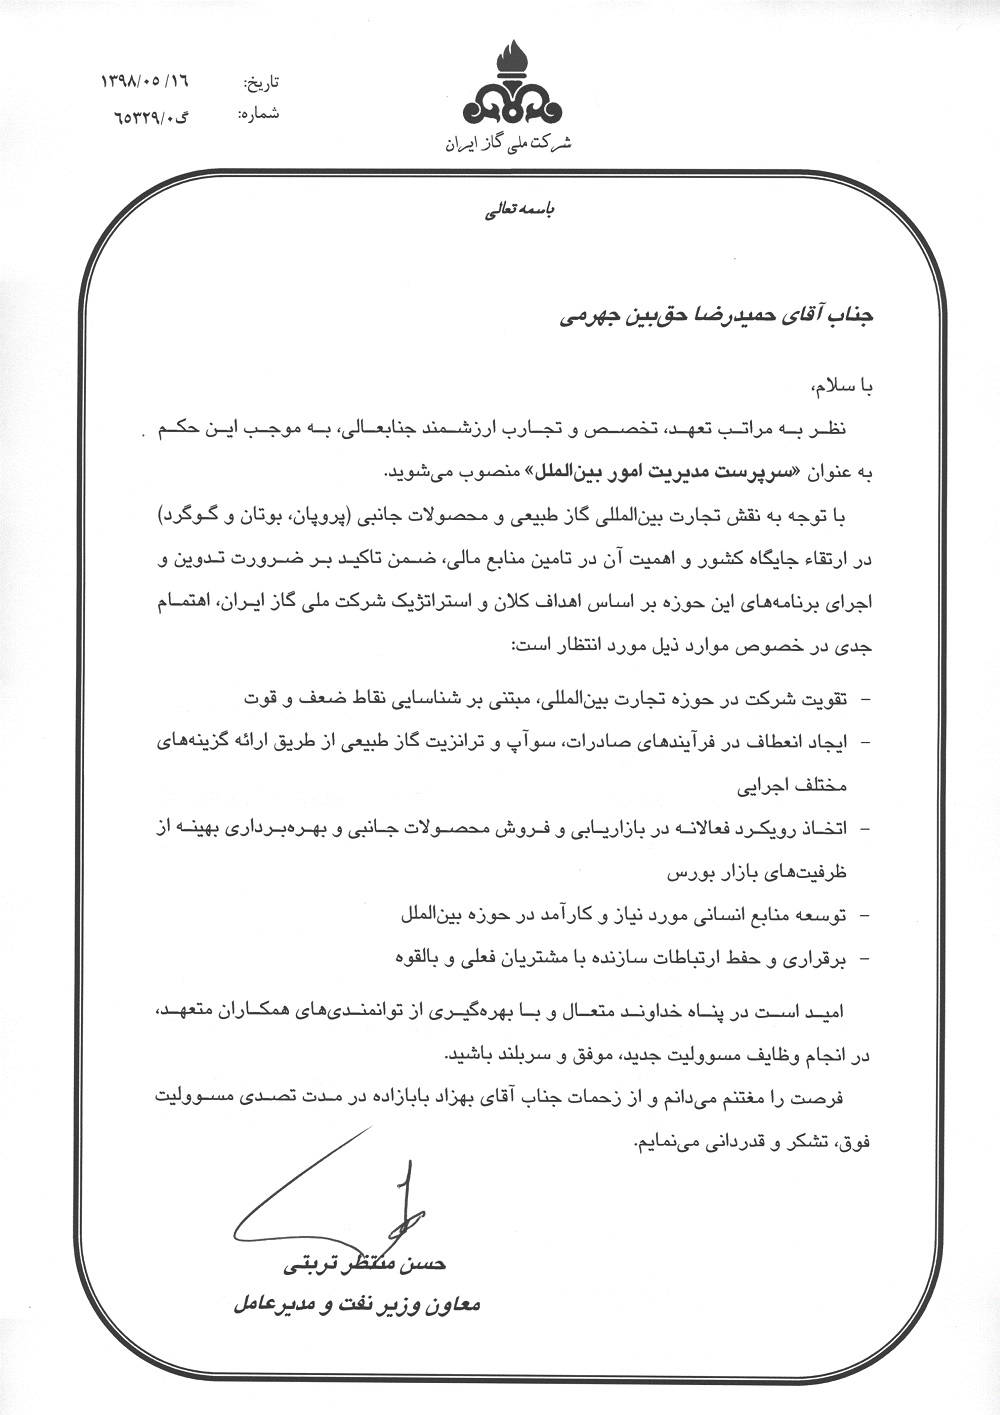 تاریخ: ۱۳۹۸/۰۵/۱۶
شماره: گ۶۵۳۲۹/۰
شرکت ملی گاز ایران
باسمه تعالی
جناب آقای حمیدرضا حق‌بین جهرمی
با سلام،
نظر به مراتب تعهد، تخصص و تجارب ارزشمند جنابعالی، به موجب این حکم
به عنوان «سرپرست مدیریت امور بین‌الملل» منصوب می‌شوید.
با توجه به نقش تجارت بین‌المللی گاز طبیعی و محصولات جانبی (پروپان، بوتان و گوگرد)
در ارتقاء جایگاه کشور و اهمیت آن در تامین منابع مالی، ضمن تاکید بر ضرورت تدوین و
اجرای برنامه‌های این حوزه بر اساس اهداف کلان و استراتژیک شرکت ملی گاز ایران، اهتمام
جدی در خصوص موارد ذیل مورد انتظار است:
- تقویت شرکت در حوزه تجارت بین‌المللی، مبتنی بر شناسایی نقاط ضعف و قوت
- ایجاد انعطاف در فرآیندهای صادرات، سوآپ و ترانزیت گاز طبیعی از طریق ارائه گزینه‌های
مختلف اجرایی
- اتخاذ رویکرد فعالانه در بازاریابی و فروش محصولات جانبی و بهره‌برداری بهینه از
ظرفیت‌های بازار بورس
- توسعه منابع انسانی مورد نیاز و کارآمد در حوزه بین‌الملل
- برقراری و حفظ ارتباطات سازنده با مشتریان فعلی و بالقوه
امید است در پناه خداوند متعال و با بهره‌گیری از توانمندی‌های همکاران متعهد،
در انجام وظایف مسوولیت جدید، موفق و سربلند باشید.
فرصت را مغتنم می‌دانم و از زحمات جناب آقای بهزاد بابازاده در مدت تصدی مسوولیت
فوق، تشکر و قدردانی می‌نمایم.
حسن منتظر تربتی
معاون وزیر نفت و مدیرعامل